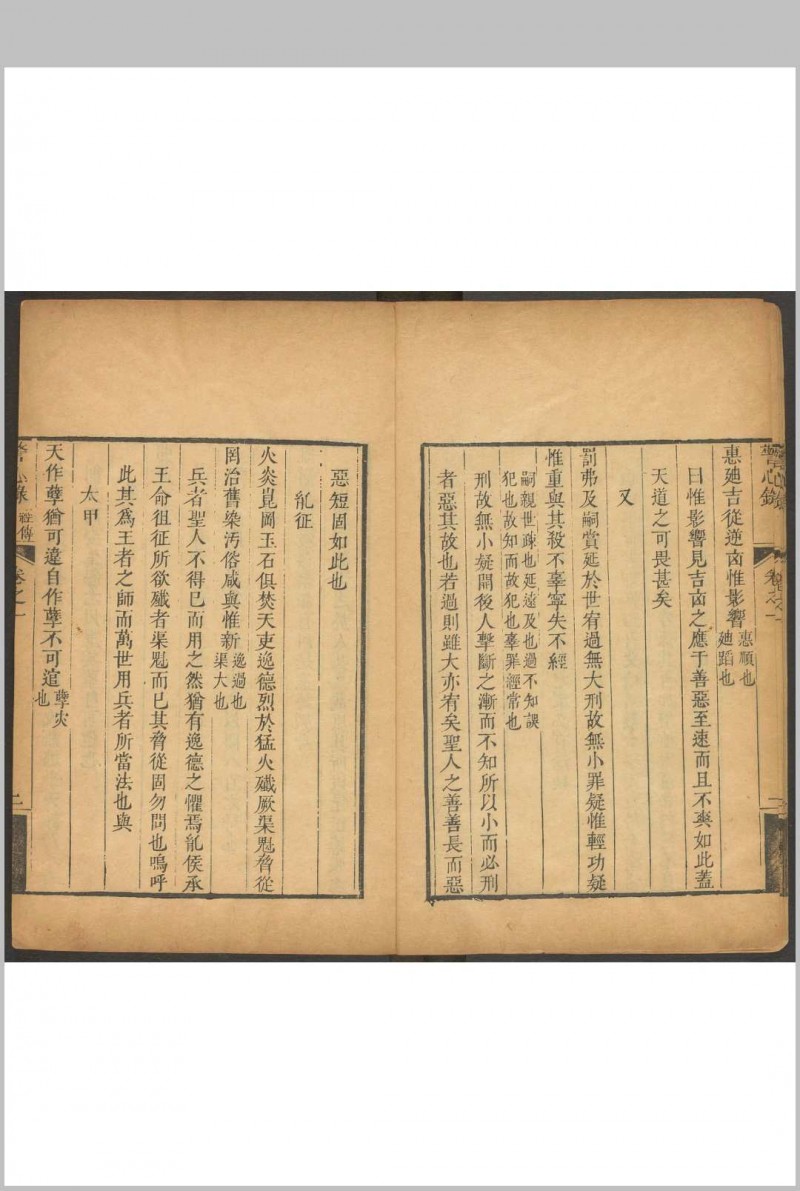 惠廸吉從逆㐫惟影響惠順也廸蹈也
曰惟影響見吉㐫之應于善惡至速而且不爽如此蓋
天道之可畏甚矣
又
罰弗及嗣賞延於世宥過無大刑故無小罪疑惟輕功疑
惟重與其殺不辜寧失不經
嗣親世疎也延遠及也過不知誤
犯也故知而故犯也辜罪經常也
刑故無小疑開後人擊斷之漸而不知所以小而必刑
者惡其故也若過則雖大亦宥矣聖人之善善長而惡
惡短固如此也
㣧征
火炎崑岡玉石俱焚天吏逸德烈於猛火殲厥渠魁脅從
罔治舊染汚俗咸與惟新逸過也渠大也
兵者聖人不得已而用之然猶有逸德之懼焉㣧侯承
王命徂征所欲殲者渠魁而已其脅從固勿問也嗚呼
此其爲王者之師而萬世用兵者所當法也與
太甲
天作孽猶可違自作孽不可逭孽灾也
心錄
卷之一
二